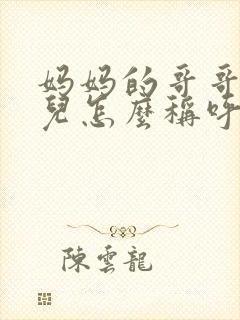 妈妈的哥哥
兒怎麼稱呼
陳雲龍